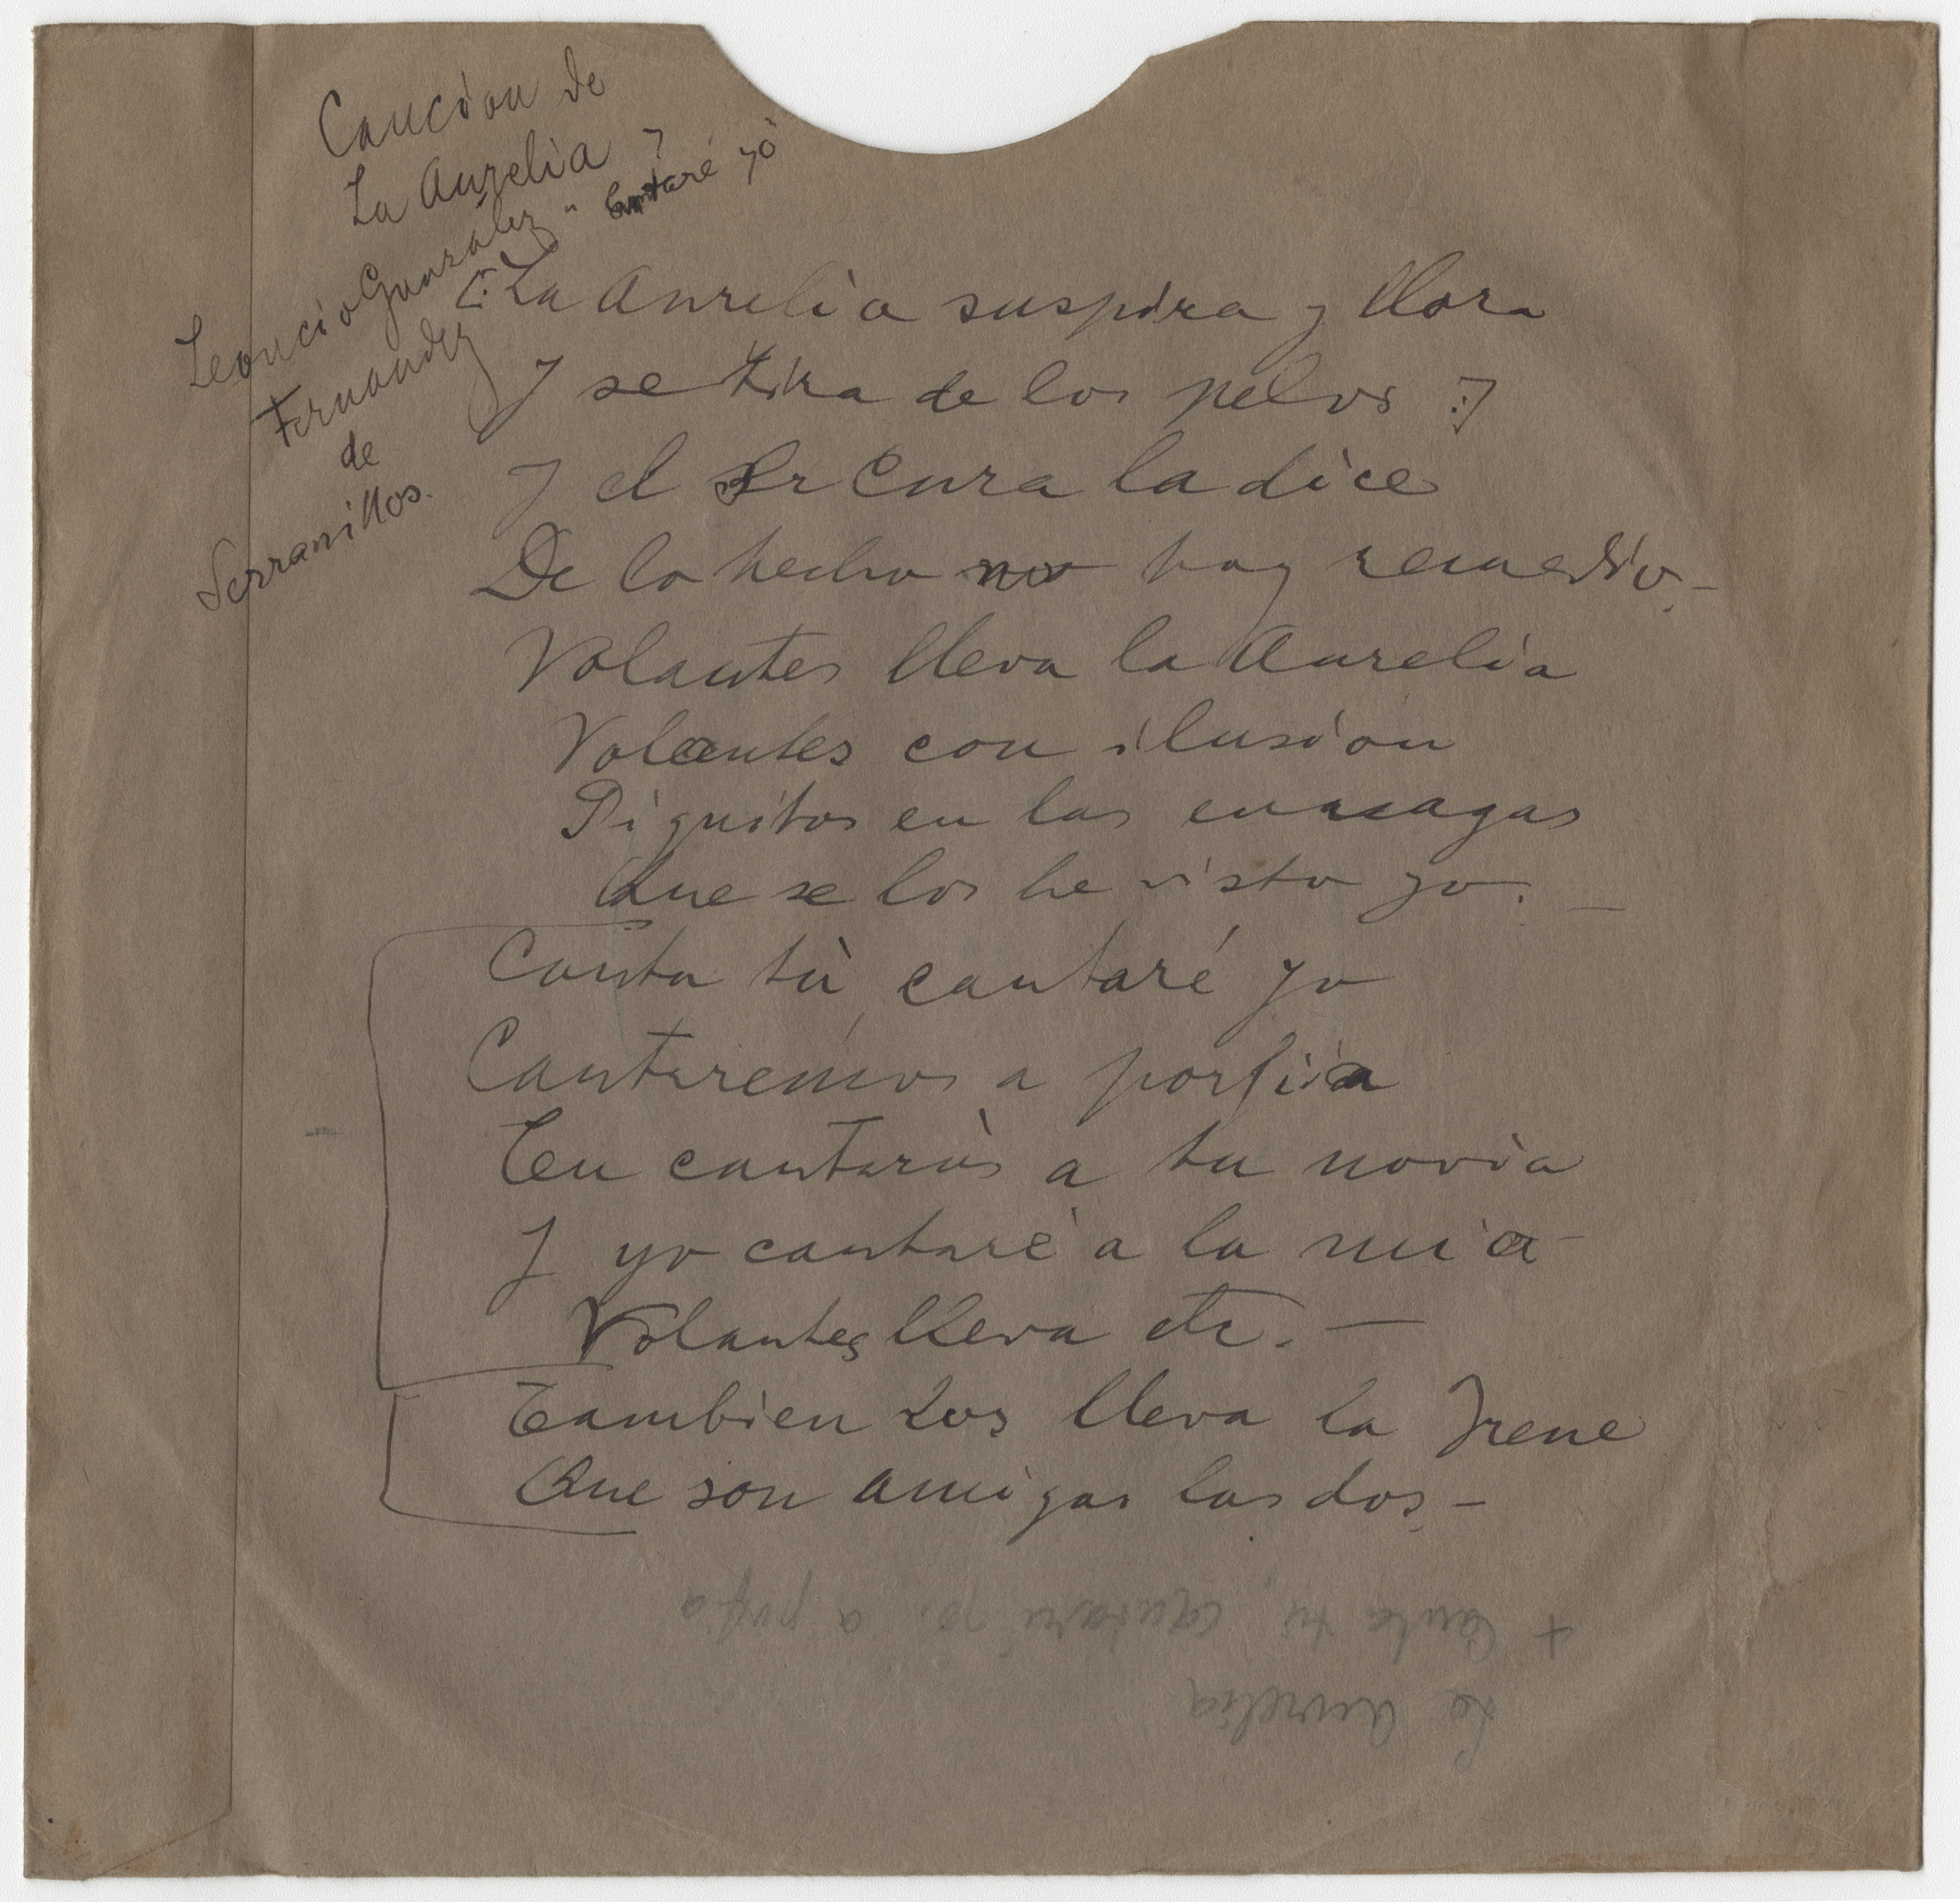 Cancion de
La Aurelia y
"Cantaré yò
Leoncio Gonzalez
Fernandez
de
Serranillos.
[: La Aurelia suspira y llora
Y se tira de los pelos :]
Y el Sr Cura la dice
De lo hecho no hay remedio.-
Volantes lleva la Aurelia
Volantes con ilusión
Piquitos en las enaagas
Que se los he visto yo. -
Canta tù, cantaré yo
Cantaremos a porfia
Tu cantaràs a tu novia
Y yo cantaré a la mia
Volantes lleva etc. -
Tambien Los lleva la Irene
Que son amigas las dos -
La Aurelia
+ Canta tù, cantaré yo. a porfia